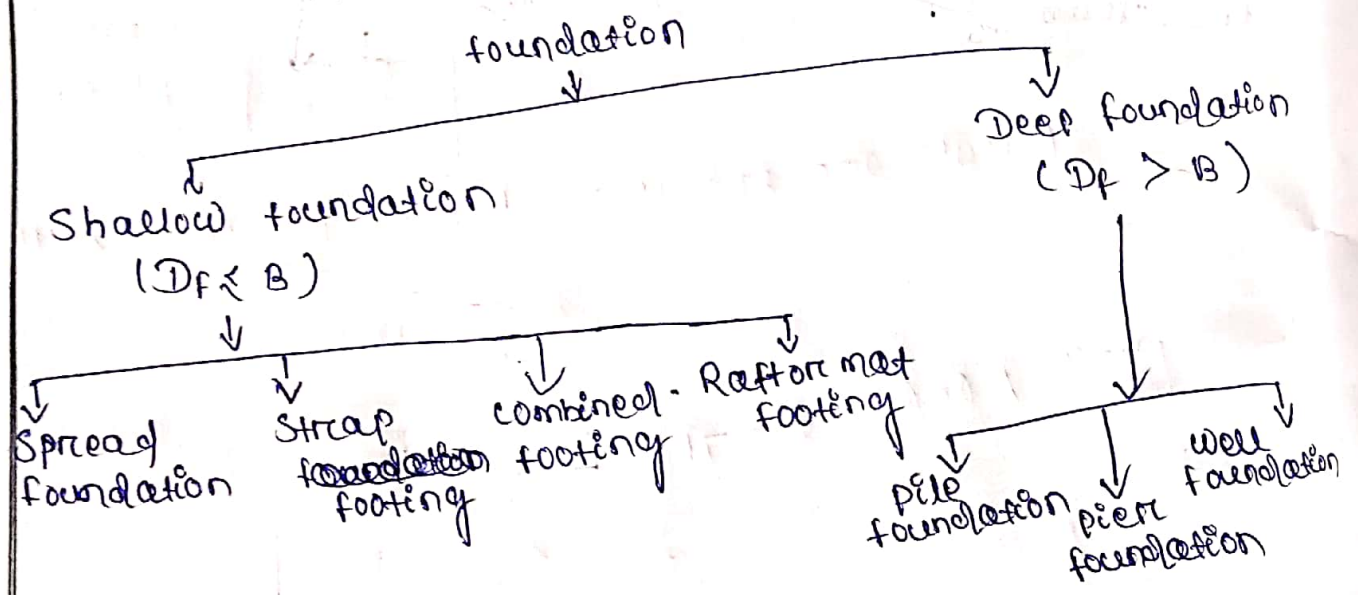 foundation
Deep foundation
(Df > B)
Shallow foundation
(Df ≤ B)
Spread
foundation
Strap
footing
combined
footing
Raft or mat
footing
pile
foundation
pier
foundation
well
foundation